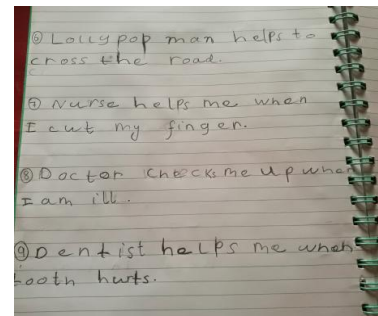 ⑥ Lollypop man helps to
cross the road.
⑦ Nurse helps me when
I cut my finger.
⑧ Doctor checks me up when
I am ill.
⑨ Dentist helps me when
tooth hurts.